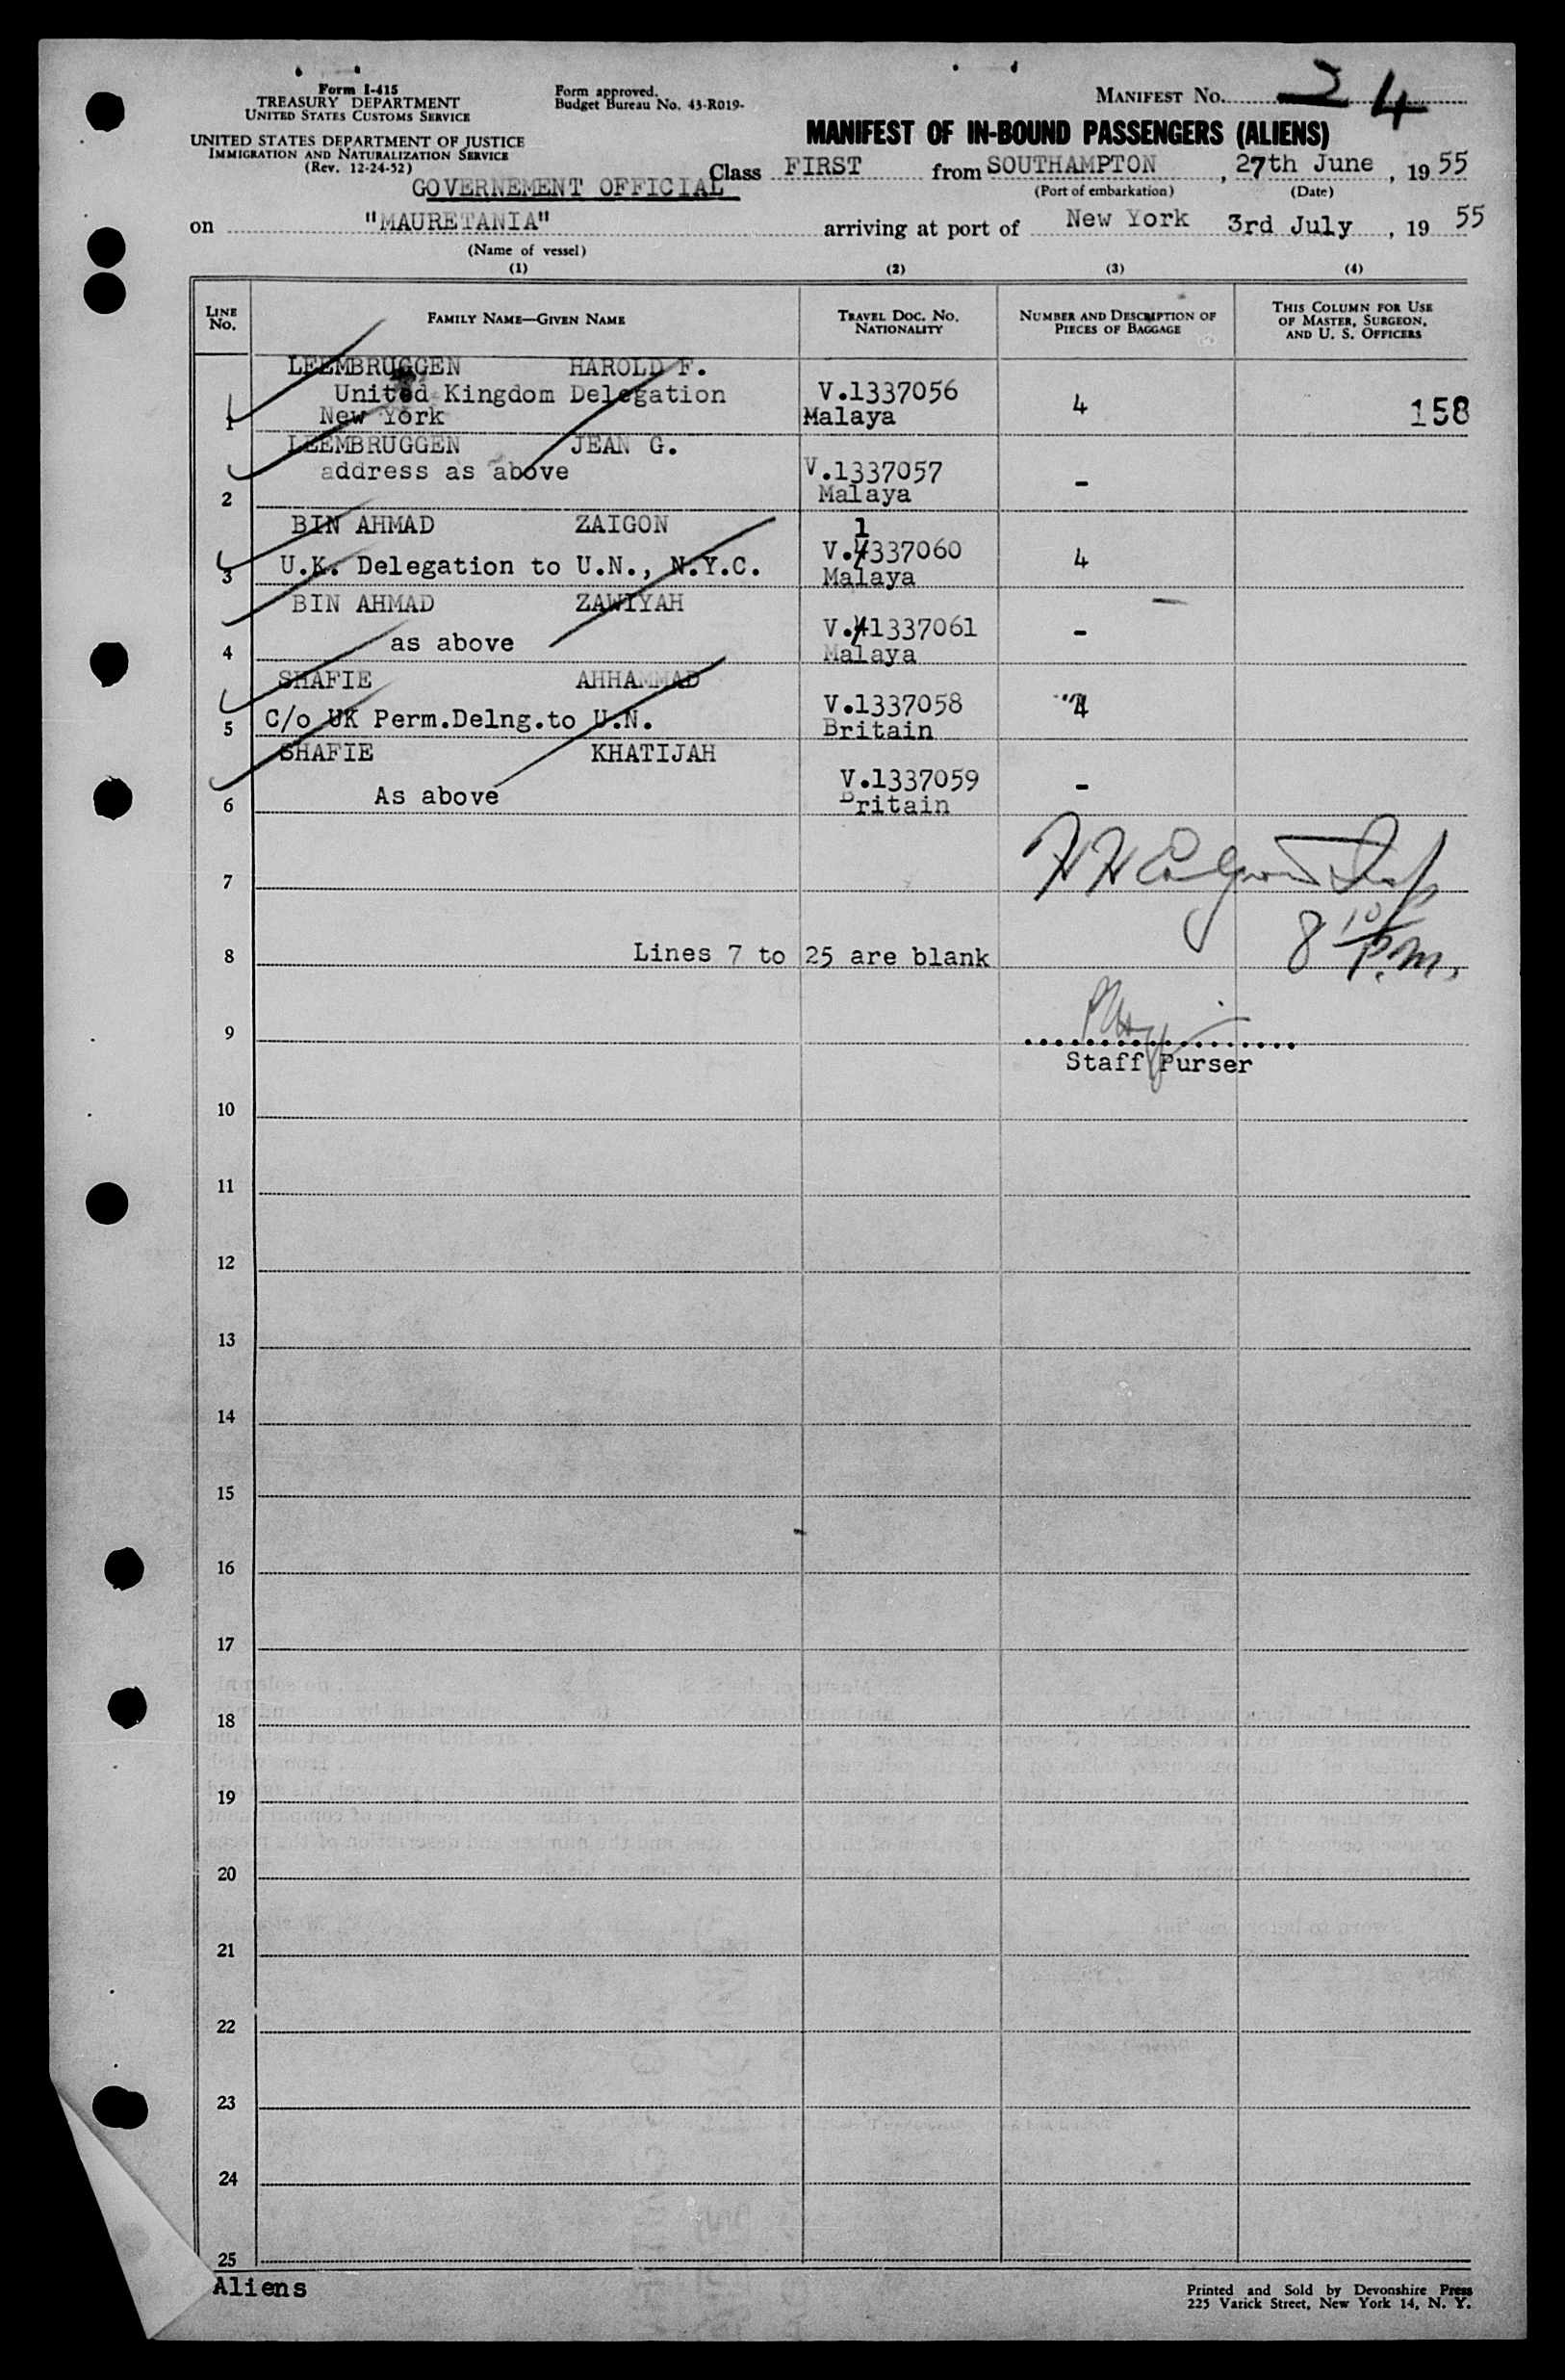 Form I-415
TREASURY DEPARTMENT
UNITED STATES CUSTOMS SERVICE
UNITED STATES DEPARTMENT OF JUSTICE
IMMIGRATION AND NATURALIZATION SERVICE
(Rev. 12-24-52)
Form approved.
Budget Bureau No. 43-R019-
MANIFEST No. 24
MANIFEST OF IN-BOUND PASSENGERS (ALIENS)
GOVERNEMENT OFFICIAL Class FIRST from SOUTHAMPTON, 27th June, 1955
(Port of embarkation) (Date)
on "MAURETANIA" arriving at port of New York 3rd July, 1955
(Name of vessel)
(1) (2) (3) (4)
LINE No. FAMILY NAME—GIVEN NAME TRAVEL DOC. NO. NATIONALITY NUMBER AND DESCRIPTION OF PIECES OF BAGGAGE THIS COLUMN FOR USE OF MASTER, SURGEON, AND U. S. OFFICERS
LEEMBRUGGEN HAROLD F.
United Kingdom Delegation V.1337056
1 New York Malaya 4 158
LEEMBRUGGEN JEAN G.
address as above V.1337057
2 Malaya -
BIN AHMAD ZAIGON 1
U.K. Delegation to U.N., N.Y.C. V.4337060 4
3 Malaya
BIN AHMAD ZAWIYAH
as above V.41337061 -
4 Malaya
SHAFIE AHHAMMAD
C/o UK Perm.Delng.to U.N. V.1337058 4
5 Britain
SHAFIE KHATIJAH
V.1337059 -
6 As above Britain
7
8 Lines 7 to 25 are blank 8 10 P.M.
9
Staff Purser
10
11
12
13
14
15
16
17
18
19
20
21
22
23
24
25
Aliens
Printed and Sold by Devonshire Press
225 Varick Street, New York 14, N. Y.